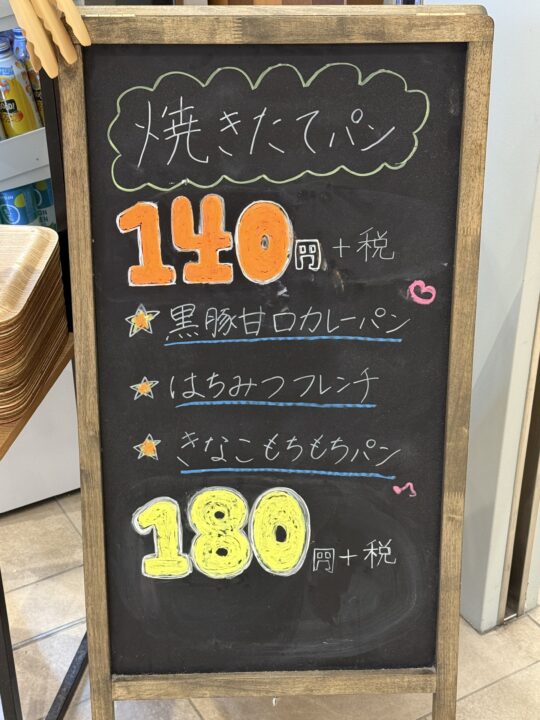 焼きたてパン
140円+税
黒豚甘口カレーパン
はちみつフレンチ
きなこもちもちパン
180円+税